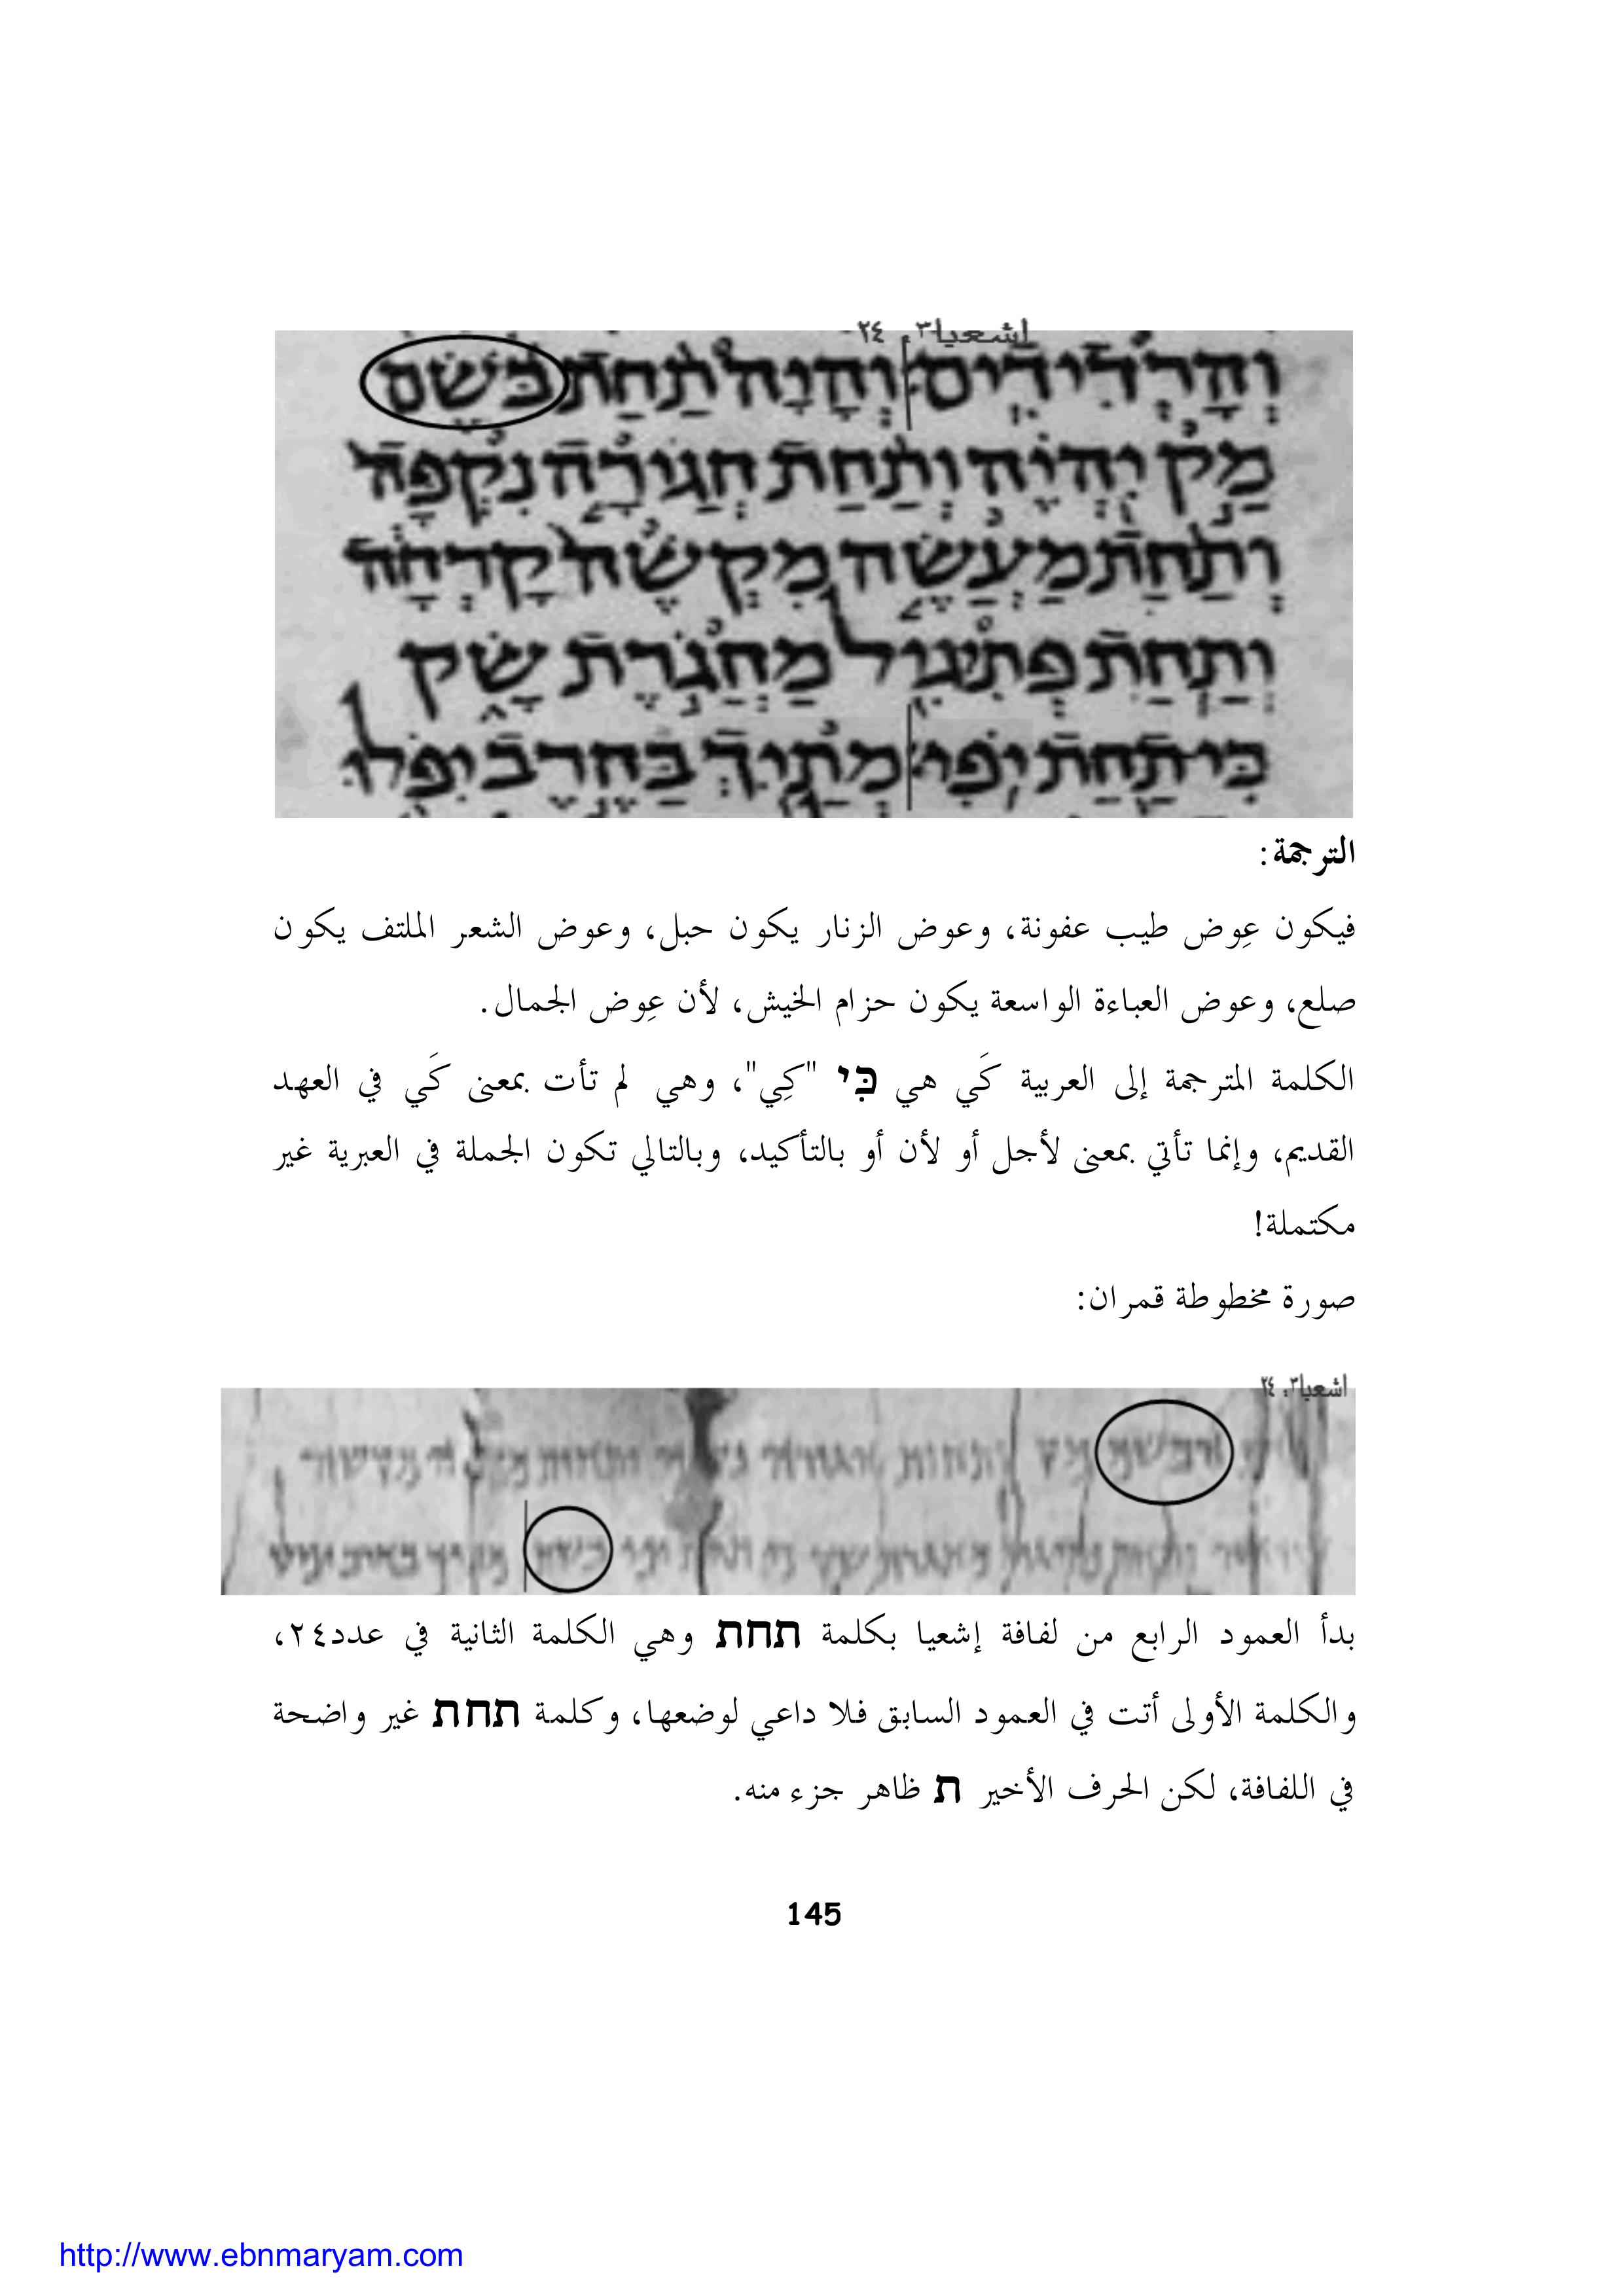 اشعيا٣: ٢٤
וְהָרְדִידִים׃ וְהָיָה תַחַת בֹּשֶׂם
מַק יִהְיֶה וְתַחַת חֲגוֹרָה נִקְפָּה
וְתַחַת מַעֲשֶׂה מִקְשֶׁה קָרְחָה
וְתַחַת פְּתִיגִיל מַחֲגֹרֶת שָׂק
כִּי תַחַת יֹפִי׃ מְתַיִךְ בַּחֶרֶב יִפֹּלוּ
الترجمة:
فيكون عِوض طيب عفونة، وعوض الزنار يكون حبل، وعوض الشعر الملتف يكون
صلع، وعوض العباءة الواسعة يكون حزام الخيش، لأن عِوض الجمال.
الكلمة المترجمة إلى العربية كَي هي כִּי "كِي"، وهي لم تأت بمعنى كَي في العهد
القديم، وإنما تأتي بمعنى لأجل أو لأن أو بالتأكيد، وبالتالي تكون الجملة في العبرية غير
مكتملة!
صورة مخطوطة قمران:
اشعيا٣: ٢٤
بدأ العمود الرابع من لفافة إشعيا بكلمة תחת وهي الكلمة الثانية في عدد٢٤،
والكلمة الأولى أتت في العمود السابق فلا داعي لوضعها، وكلمة תחת غير واضحة
في اللفافة، لكن الحرف الأخير ת ظاهر جزء منه.
145
http://www.ebnmaryam.com